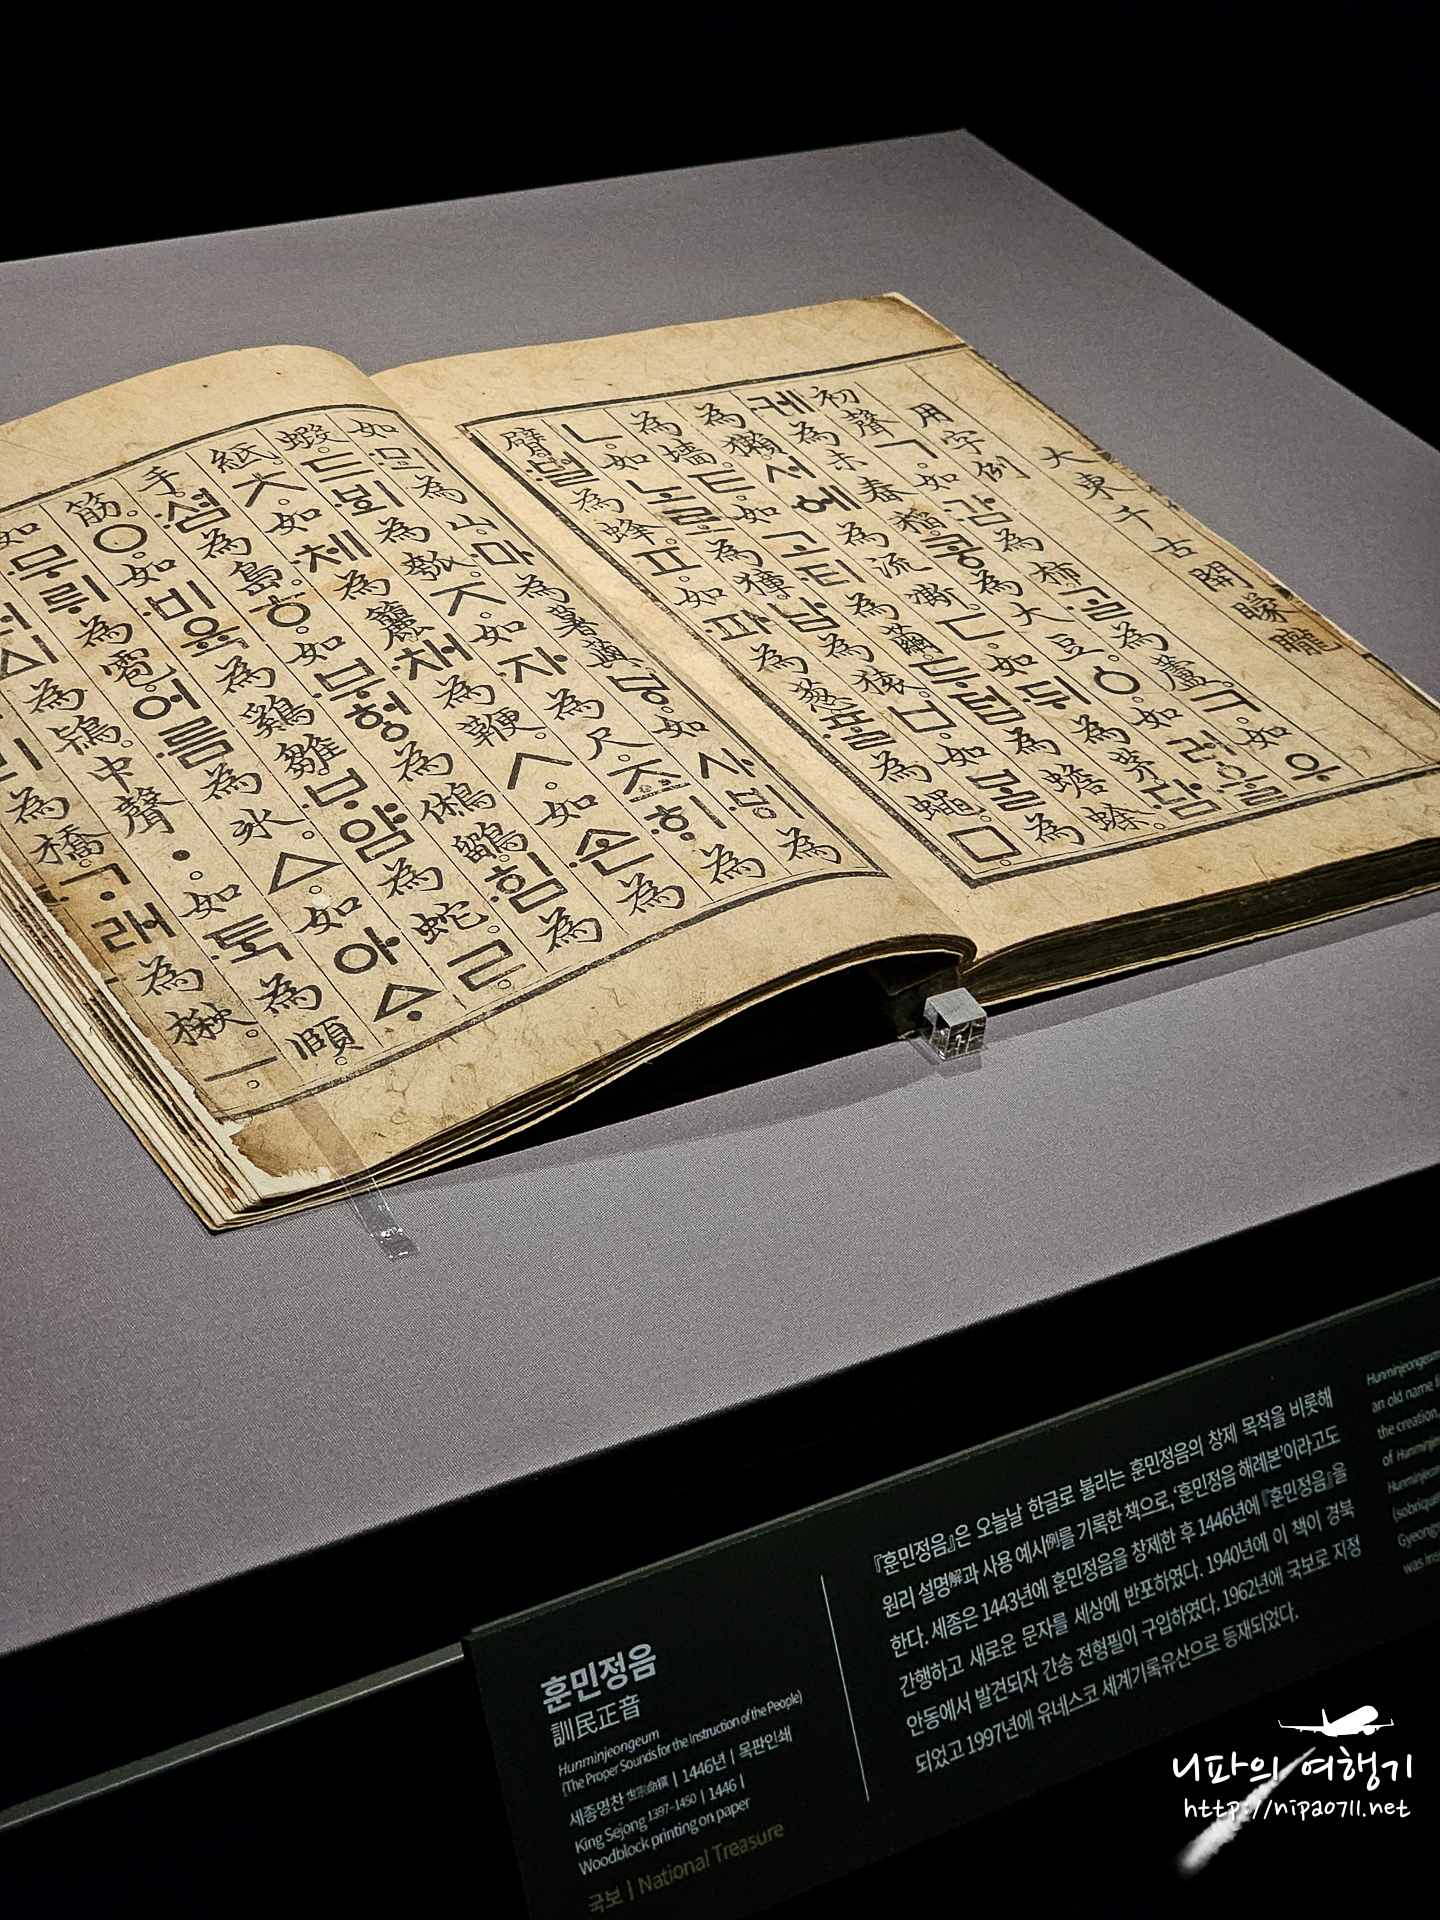 大東千古開矇矓
用字例
初聲ㄱ。如:감為柿。·ᄀᆞᆯ為蘆。ㅋ。如우
·케為未舂稻。콩為大豆。ㆁ。如러·울
為獺。서·에為流凘。ㄷ。如·뒤為茅。·담
為墻。ㅌ。如고·티為繭。두텁為蟾蜍。
ㄴ。如노로為獐。납為猿。ㅂ。如ᄇᆞᆯ為
臂。:벌為蜂。ㅍ。如·파為葱。·ᄑᆞᆯ為蠅。ㅁ。
如:뫼為山。·마為薯藇。ㅸ。如사·ᄫᅵ為
蝦。드·ᄫᅴ為瓠。ㅈ。如·자為尺。죠·ᄒᆡ為
紙。ㅊ。如·체為籭。·채為鞭。ㅅ。如·손為
手。:셤為島。ㅎ。如·부헝為鵂鶹。·힘為
筋。ㅇ。如·비육為鷄雛。·ᄇᆞ얌為蛇。ㄹ。
如·무뤼為雹。어·름為氷。ㅿ。如아ᅀᆞ
ᅀᅵ為鴇。中聲ㆍ。如·ᄐᆞᆨ為頤。
리為橋。·ᄀᆞ래為楸。ㅡ。
훈민정음
訓民正音
Hunminjeongeum
(The Proper Sounds for the Instruction of the People)
세종명찬 世宗命撰 | 1446년 | 목판인쇄
King Sejong 1397-1450 | 1446 |
Woodblock printing on paper
국보 | National Treasure
『훈민정음』은 오늘날 한글로 불리는 훈민정음의 창제 목적을 비롯해
원리 설명解과 사용 예시例를 기록한 책으로, '훈민정음 해례본'이라고도
한다. 세종은 1443년에 훈민정음을 창제한 후 1446년에 『훈민정음』을
간행하고 새로운 문자를 세상에 반포하였다. 1940년에 이 책이 경북
안동에서 발견되자 간송 전형필이 구입하였다. 1962년에 국보로 지정
되었고 1997년에 유네스코 세계기록유산으로 등재되었다.
Hunminjeongeum
an old name f
the creation,
of Hunminje
Hunminjeo
(sobrique
Gyeong
was ins
니파의 여행기
http://nipa0711.net